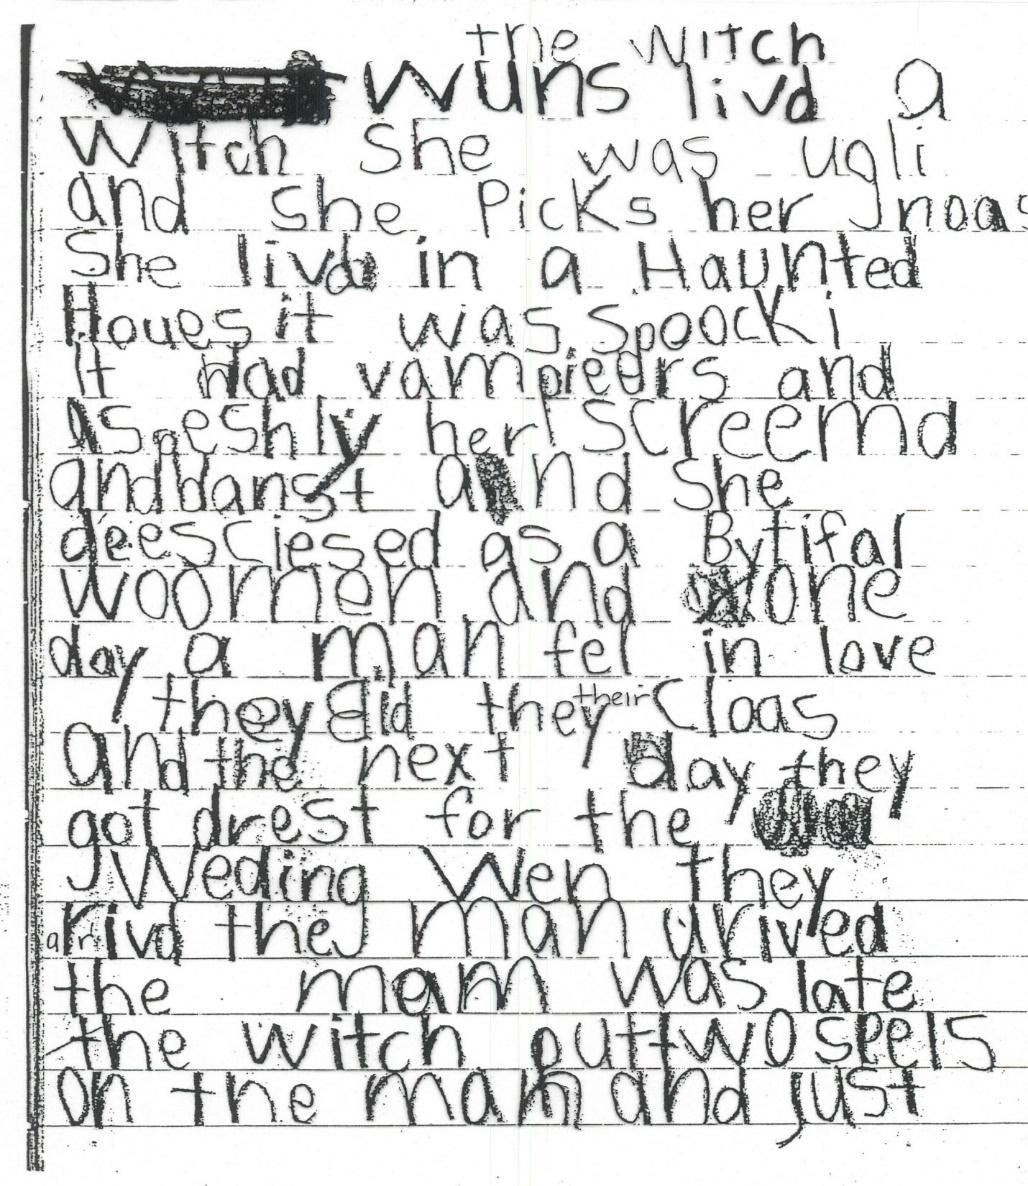 the witch
wuns livd a
Witch She was ugli
and she Picks her noas
She livd in a Haunted
Houes it was Spoocki
it Had vampieers and
aspeshly her screemd
anddanst and She
deesciesed as a Bytifal
woomen and one
day a man fel in love
they did they their Cloas
and the next day they
got drest for the
Weding Wen they
arrivd the man urived
the mam was late
the witch puttwo speels
on the man and just